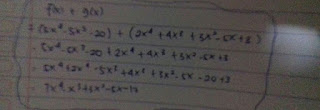 f(x) + g(x)
= (5x⁴ - 3x³ - 20) + (2x⁴ + 4x³ + 3x² - 5x + 3)
= 5x⁴ - 3x³ - 20 + 2x⁴ + 4x³ + 3x² - 5x + 3
= 5x⁴ + 2x⁴ - 3x³ + 4x³ + 3x² - 5x - 20 + 3
= 7x⁴ + x³ + 3x² - 5x - 17